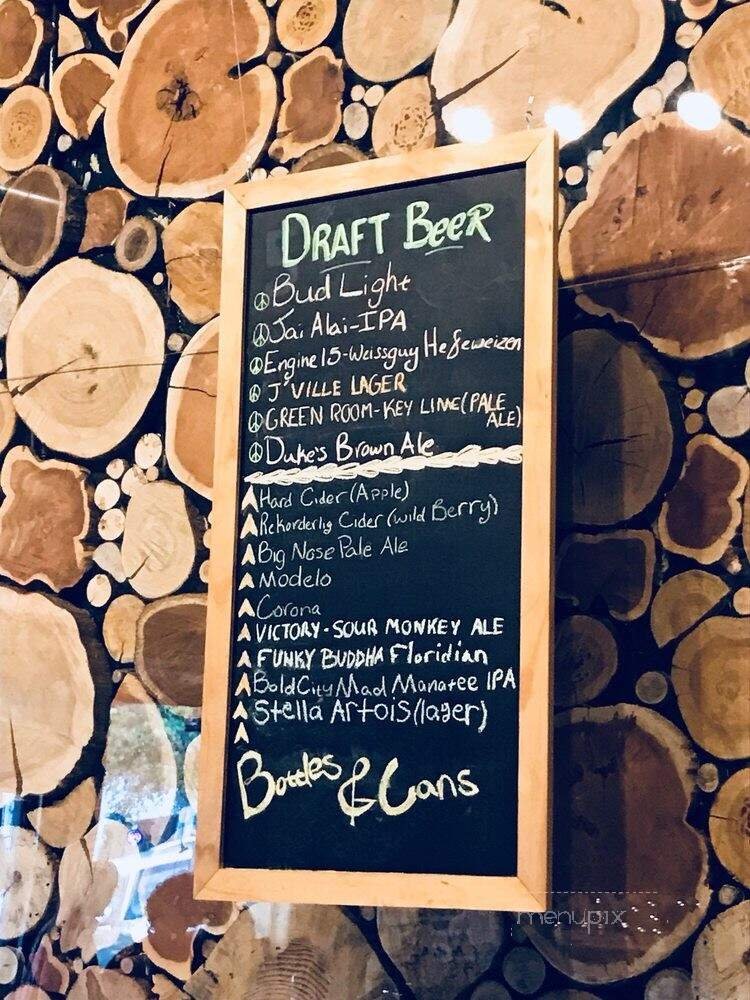 DRAFT BEER
Bud Light
Jai Alai-IPA
Engine 15-Weissguy Hefeweizen
J'VILLE LAGER
GREEN ROOM-KEY LIME(PALE
ALE)
Duke's Brown Ale
Hard Cider (Apple)
Rekorderlig Cider (Wild Berry)
Big Nose Pale Ale
Modelo
Corona
VICTORY-SOUR MONKEY ALE
FUNKY BUDDHA Floridian
Bold City Mad Manatee IPA
Stella Artois (lager)
Bottles & Cans
menupix